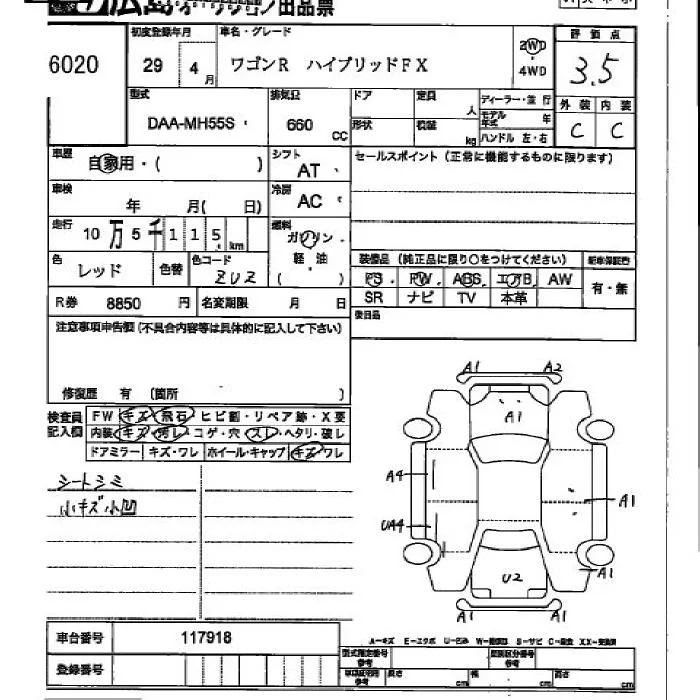 出品票
初度登録年月 車名・グレード 評価点
6020 29 4月 ワゴンR ハイブリッドFX 2WD・4WD 3.5
型式 排気量 ドア 定員 人 ディーラー・並行 外装 内装
DAA-MH55S 660 CC 形状 積載 kg モデル年式 年 ハンドル 左・右 C C
車歴 自家用・( ) シフト AT セールスポイント(正常に機能するものに限ります)
車検 年 月( 日) 冷房 AC
走行 10万5千115 km 燃料 ガソリン・軽油 ( )
装備品 (純正品に限り○をつけてください)
色 レッド 色替 色コード ZUZ PS PW ABS エアB AW 有・無
R券 8850 円 名変期限 月 日 SR ナビ TV 本革
後日品
注意事項申告欄(不具合内容等は具体的に記入して下さい)
修復歴 有 (箇所 )
検査員記入欄 FW キズ 飛石 ヒビ割・リペア跡・X要
内装 キズ・汚レ・コゲ・穴・スレ・ヘタリ・破レ
ドアミラー キズ・ワレ ホイール・キャップ キズ ワレ
シートシミ
小キズ小凹
A1 A2
A1
A4 A1
UA4
U2 A1
A1 A1
車台番号 117918
登録番号
A-キズ E-エクボ U-凹ミ W-補修跡 S-サビ C-腐食 XX-交換済
型式指定番号 参考 類別区分番号 参考
長さ cm 幅 cm 高さ cm